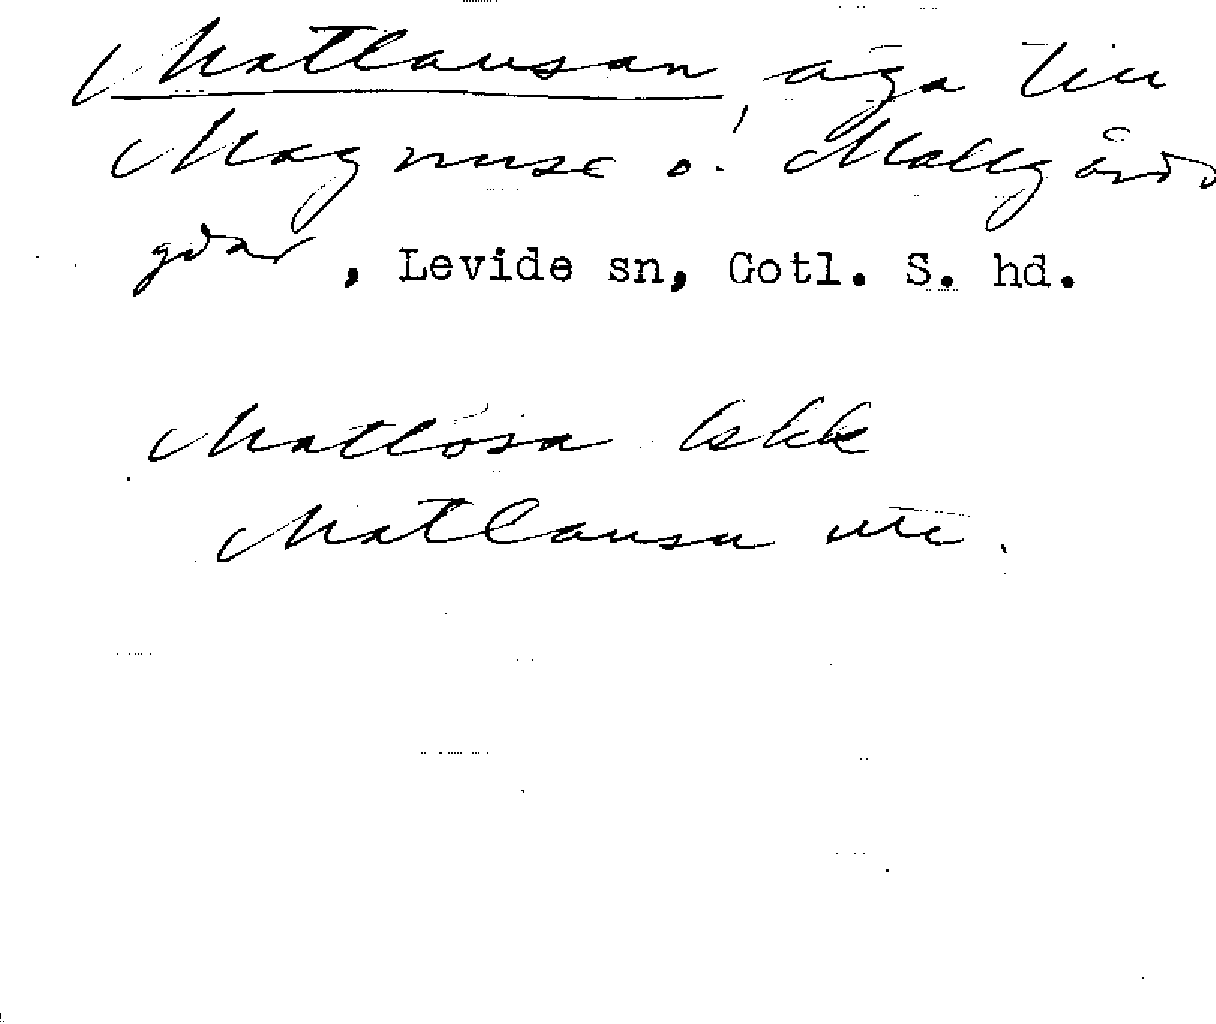 Matlausan, äga till
Magnuse o. Mallgårds
gdar, Levide sn, Gotl. S. hd.
Matlösa lskk
Matlausa utt.